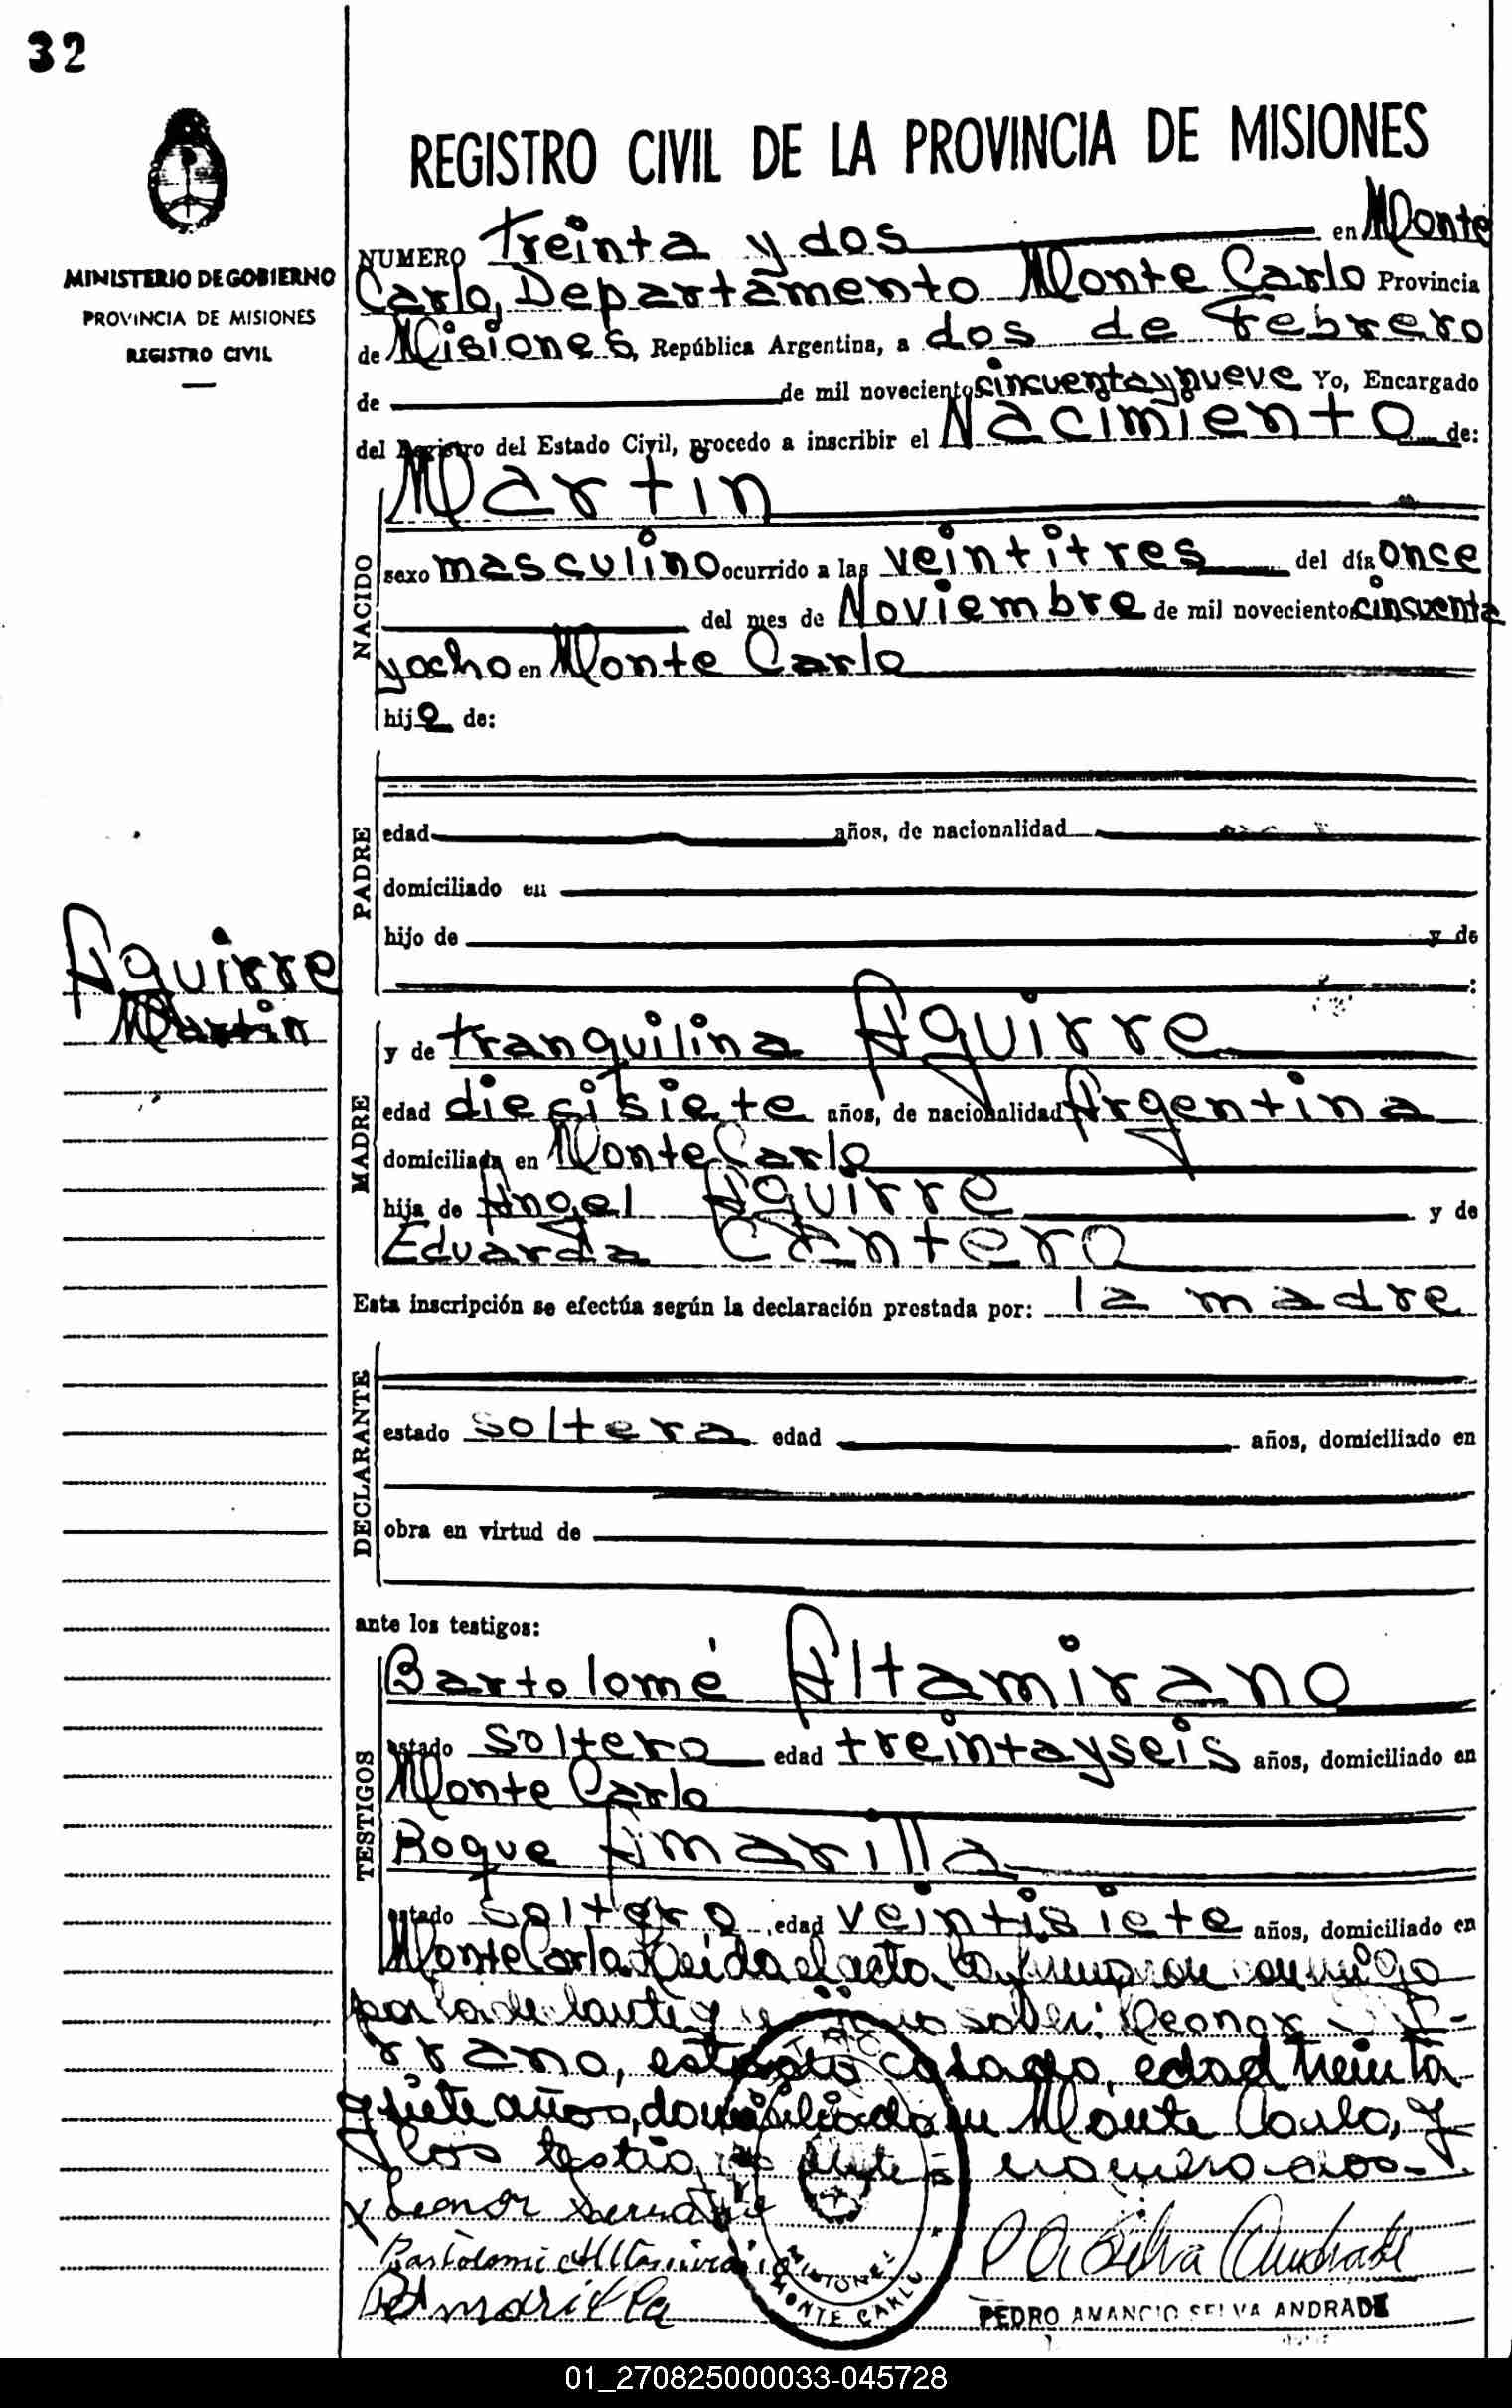 32
MINISTERIO DE GOBIERNO
PROVINCIA DE MISIONES
REGISTRO CIVIL
REGISTRO CIVIL DE LA PROVINCIA DE MISIONES
NUMERO Treinta y dos en Monte
Carlo, Departamento Monte Carlo Provincia
de Misiones, República Argentina, a dos de Febrero
de de mil novecientos cincuenta y nueve Yo, Encargado
del Registro del Estado Civil, procedo a inscribir el Nacimiento de:
NACIDO
Martin
sexo masculino ocurrido a las veintitres del día once
del mes de Noviembre de mil novecientos cincuenta
y ocho en Monte Carlo
hijo de:
PADRE
edad años, de nacionalidad
domiciliado en
hijo de y de
:
Aguirre
Martin
MADRE
y de tranquilina Aguirre
edad diecisiete años, de nacionalidad Argentina
domiciliada en Monte Carlo
hija de Angel Aguirre y de
Eduarda Cantero
Esta inscripción se efectúa según la declaración prestada por: la madre
DECLARANTE
estado soltera edad años, domiciliado en
obra en virtud de
ante los testigos:
TESTIGOS
Bartolomé Altamirano
estado soltero edad treinta y seis años, domiciliado en
Monte Carlo
Roque Amarilla
estado soltero edad veintisiete años, domiciliado en
Monte Carlo. Leida el acta la firmaron conmigo
por la declarante que no saber: Leonor Se-
rrano, estado casado, edad treinta
y siete años, domiciliado en Monte Carlo, y
los testigos numero dos.
x Leonor Serrano
Bartolomé Altamirano
R Amarilla
P A Selva Andrade
MISIONES
MONTE CARLO
PEDRO AMANCIO SELVA ANDRADE
01_270825000033-045728